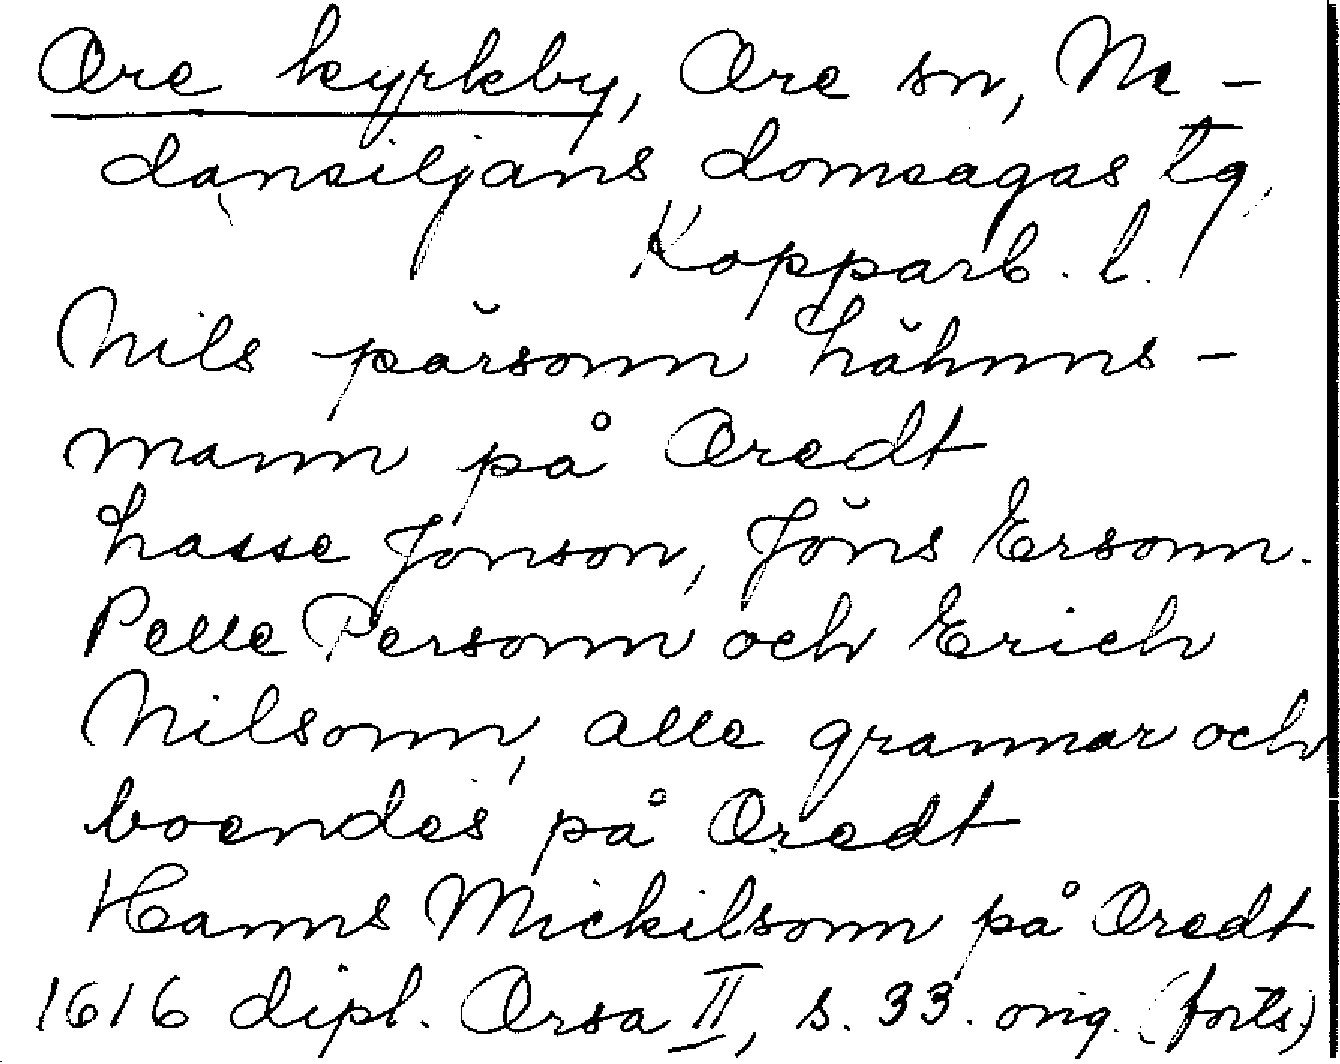 Ore kyrkby, Ore sn, Ne-
dansiljans domsagas tg,
Kopparb. l.
Nils pärsonn Lähnns-
mann på Oredt
Lasse Jonson, Jöns Ersonn.
Pelle Personn och Erich
Nilsonn, alle grannar och
boendes på Oredt
Hanns Mickilsonn på Oredt
1616 dipl. Orsa II, s. 33. orig. (forts)